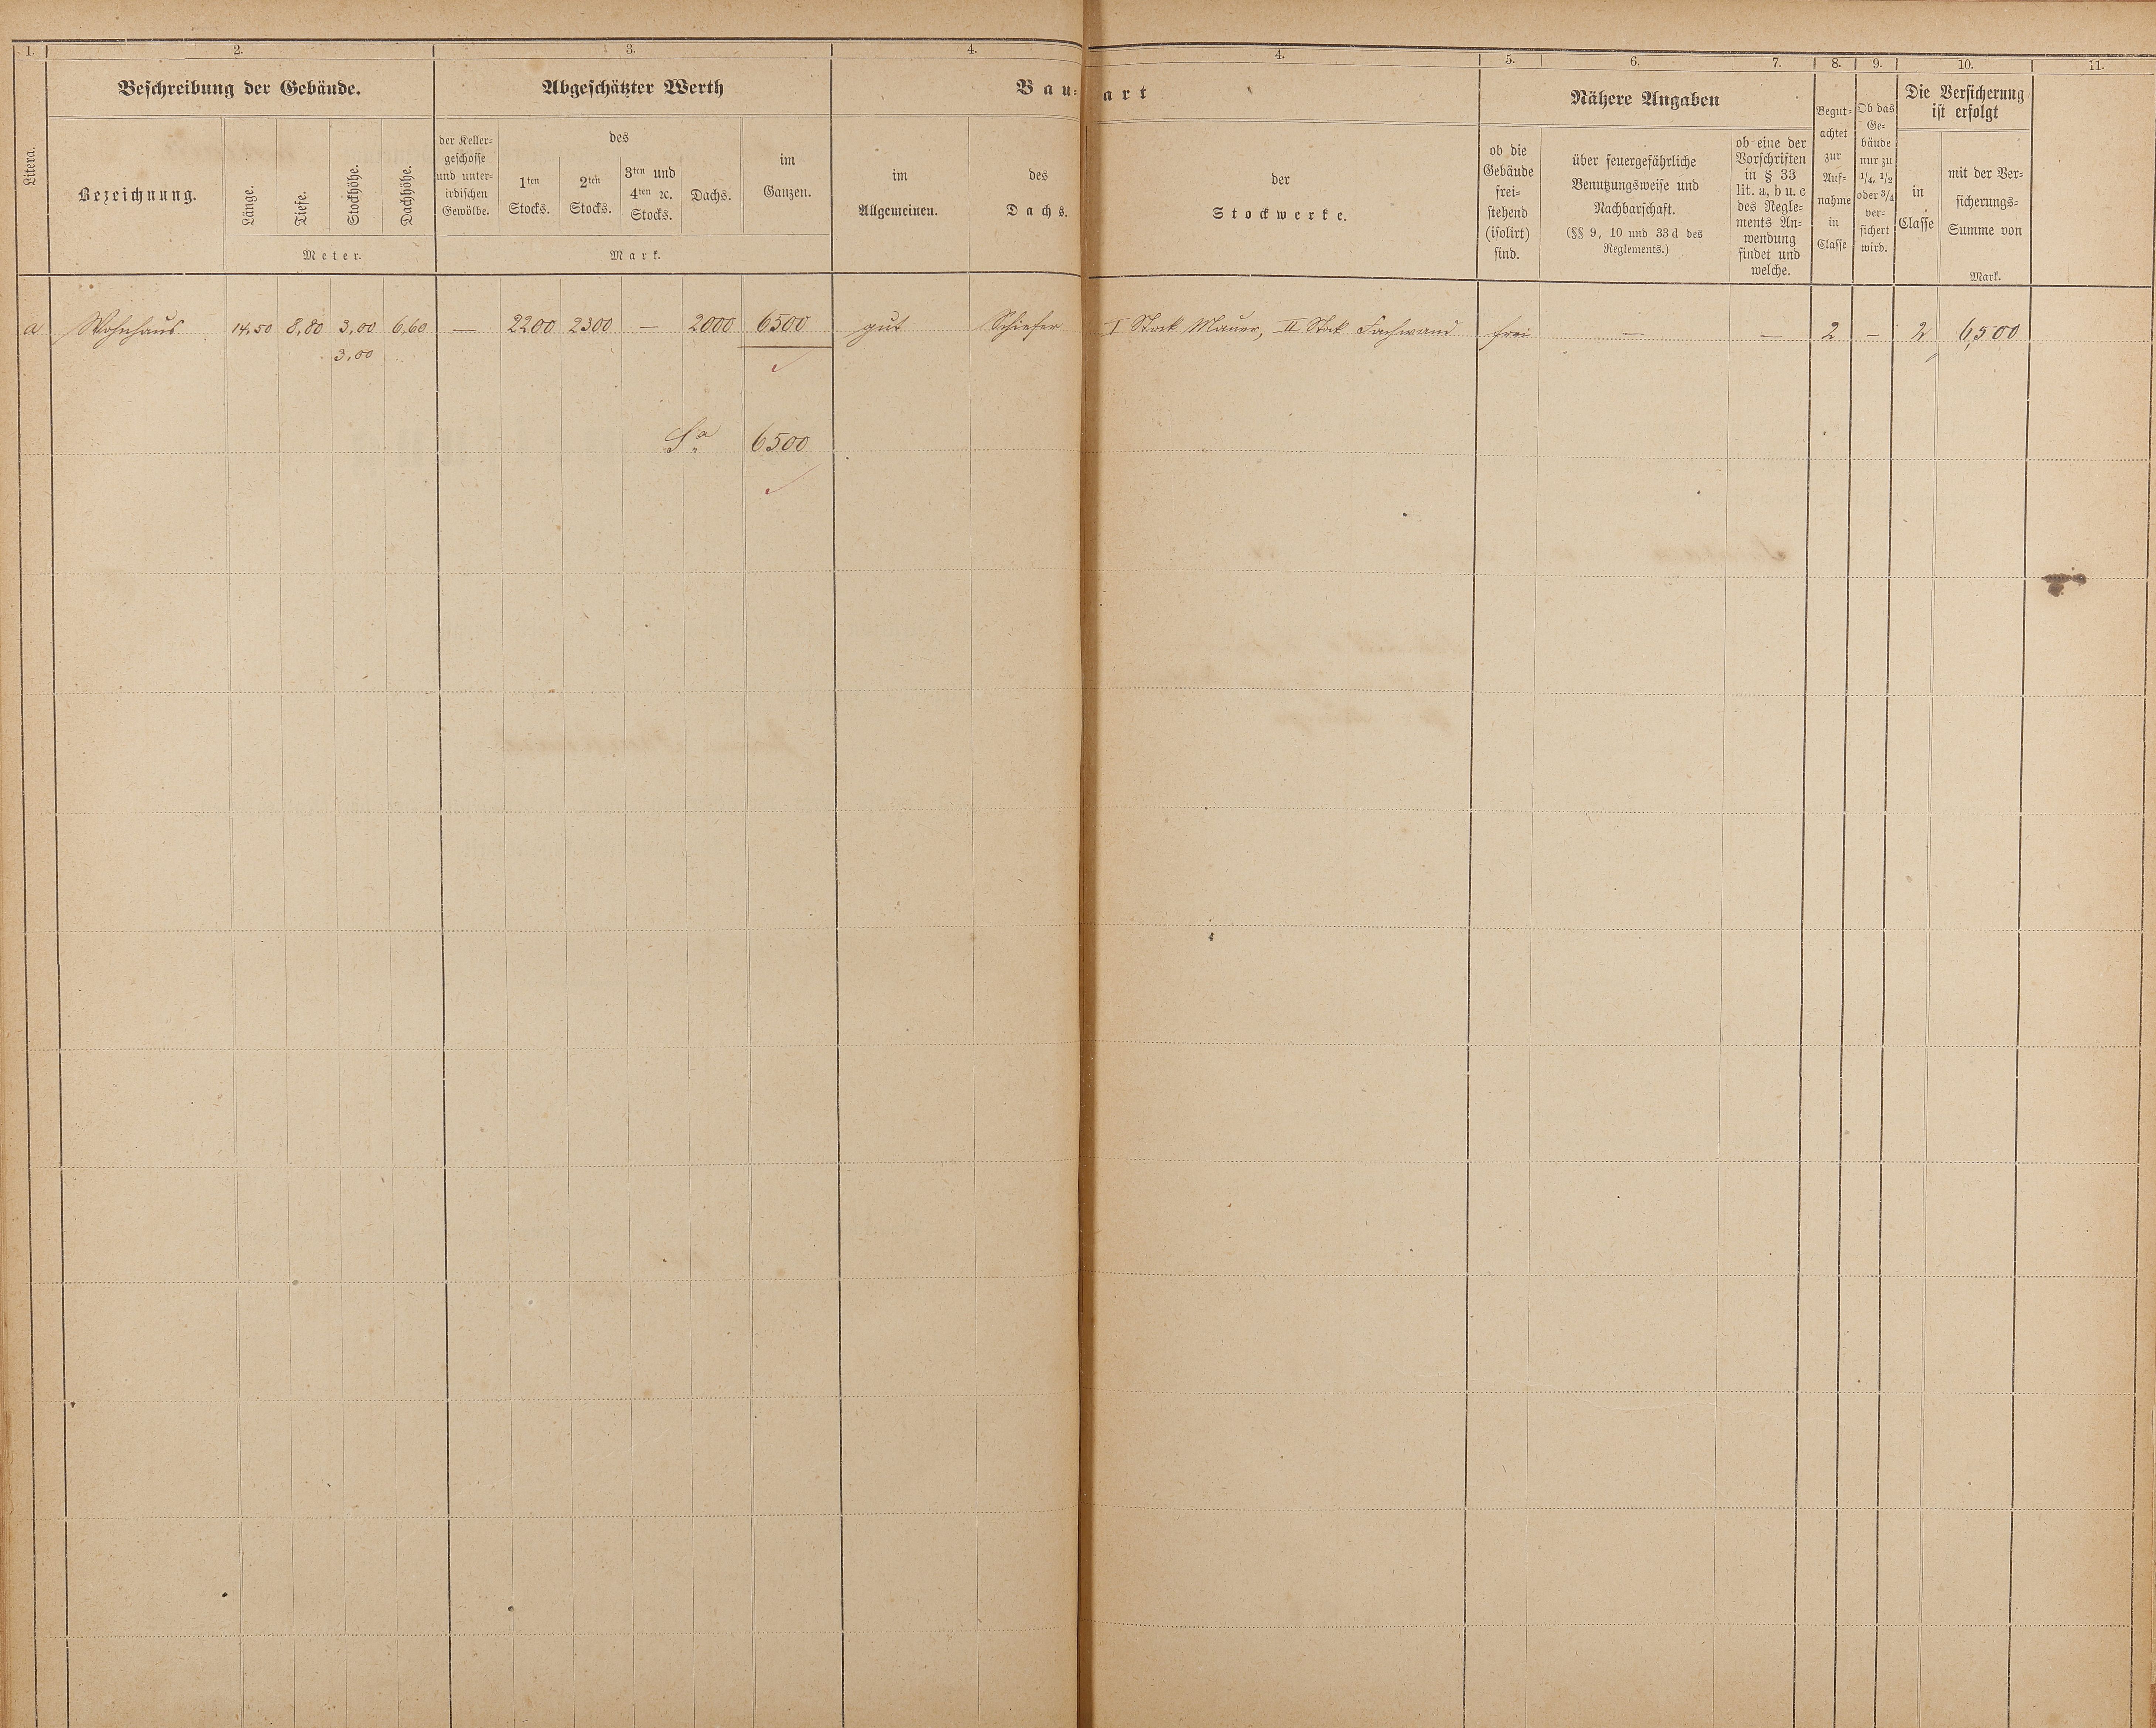 1. 2. 3. 4. 4. 5. 6. 7. 8. 9. 10. 11.
Litera.
Beschreibung der Gebäude.
Bezeichnung.
Länge.
Tiefe.
Stockhöhe.
Dachhöhe.
Meter.
Abgeschätzter Werth
der Keller-
geschosse
und unter-
irdischen
Gewölbe.
des
1ten
Stocks.
2ten
Stocks.
3ten und
4ten ꝛc.
Stocks.
Dachs.
im
Ganzen.
Mark.
Bau-art
im
Allgemeinen.
des
Dachs.
der
Stockwerke.
Nähere Angaben
ob die
Gebäude
frei-
stehend
(isolirt)
sind.
über feuergefährliche
Benutzungsweise und
Nachbarschaft.
(§§ 9, 10 und 33 d des
Reglements.)
ob eine der
Vorschriften
in § 33
lit. a, b u. c
des Regle-
ments An-
wendung
findet und
welche.
Begut-
achtet
zur
Auf-
nahme
in
Classe
Ob das
Ge-
bäude
nur zu
1/4, 1/2
oder 3/4
ver-
sichert
wird.
Die Versicherung
ist erfolgt
in
Classe
mit der Ver-
sicherungs-
Summe von
Mark.
a Wohnhaus 14,50 8,80 3,00 6,60 — 2200 2300 — 2000 6500 gut Schiefer I Stock Mauer, II Stock Fachwand frei — — 2 — 2 6,500
3,00
Sa 6500